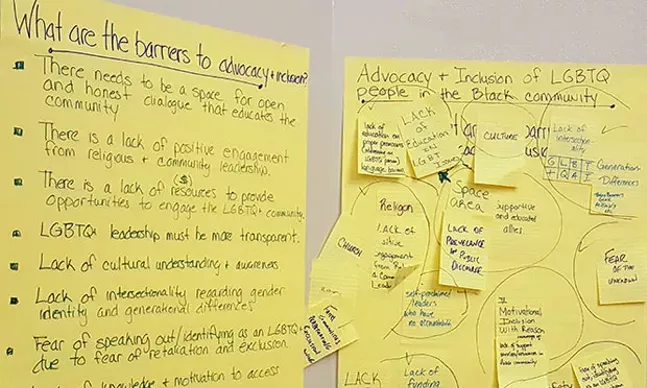 What are the barriers to advocacy + inclusion?
There needs to be a space for open
and honest dialogue that educates the
community
There is a lack of positive engagement
from religious + community leadership.
There is a lack of resources to provide
($)
opportunities to engage the LGBTQ+ community
LGBTQ+ leadership must be more transparent.
Lack of cultural understanding + awareness
Lack of intersectionality regarding gender
identity and generational differences
Fear of speaking out/identifying as an LGBTQ+
due to fear of retaliation and exclusion.
knowledge + motivation to access
Advocacy + Inclusion of LGBTQ
people in the Black community
lack of
education on
proper pronouns
LACK
of
Education
ON
LGBT
Issues
CULTURE
Lack of
intersection-
ality
GLBT
+QAI
Generation
Differences
Religion
Lack of
CHURCH
Space
area
LACK OF
PREVELANCE
IN PUBLIC
DISCOURSE
supportive
and educated
allies
FEAR
OF THE
UNKNOWN
self-proclaimed
leaders
who have
no accountability
Motivational
Inclusion
With Reason
LACK
Lack of
funding